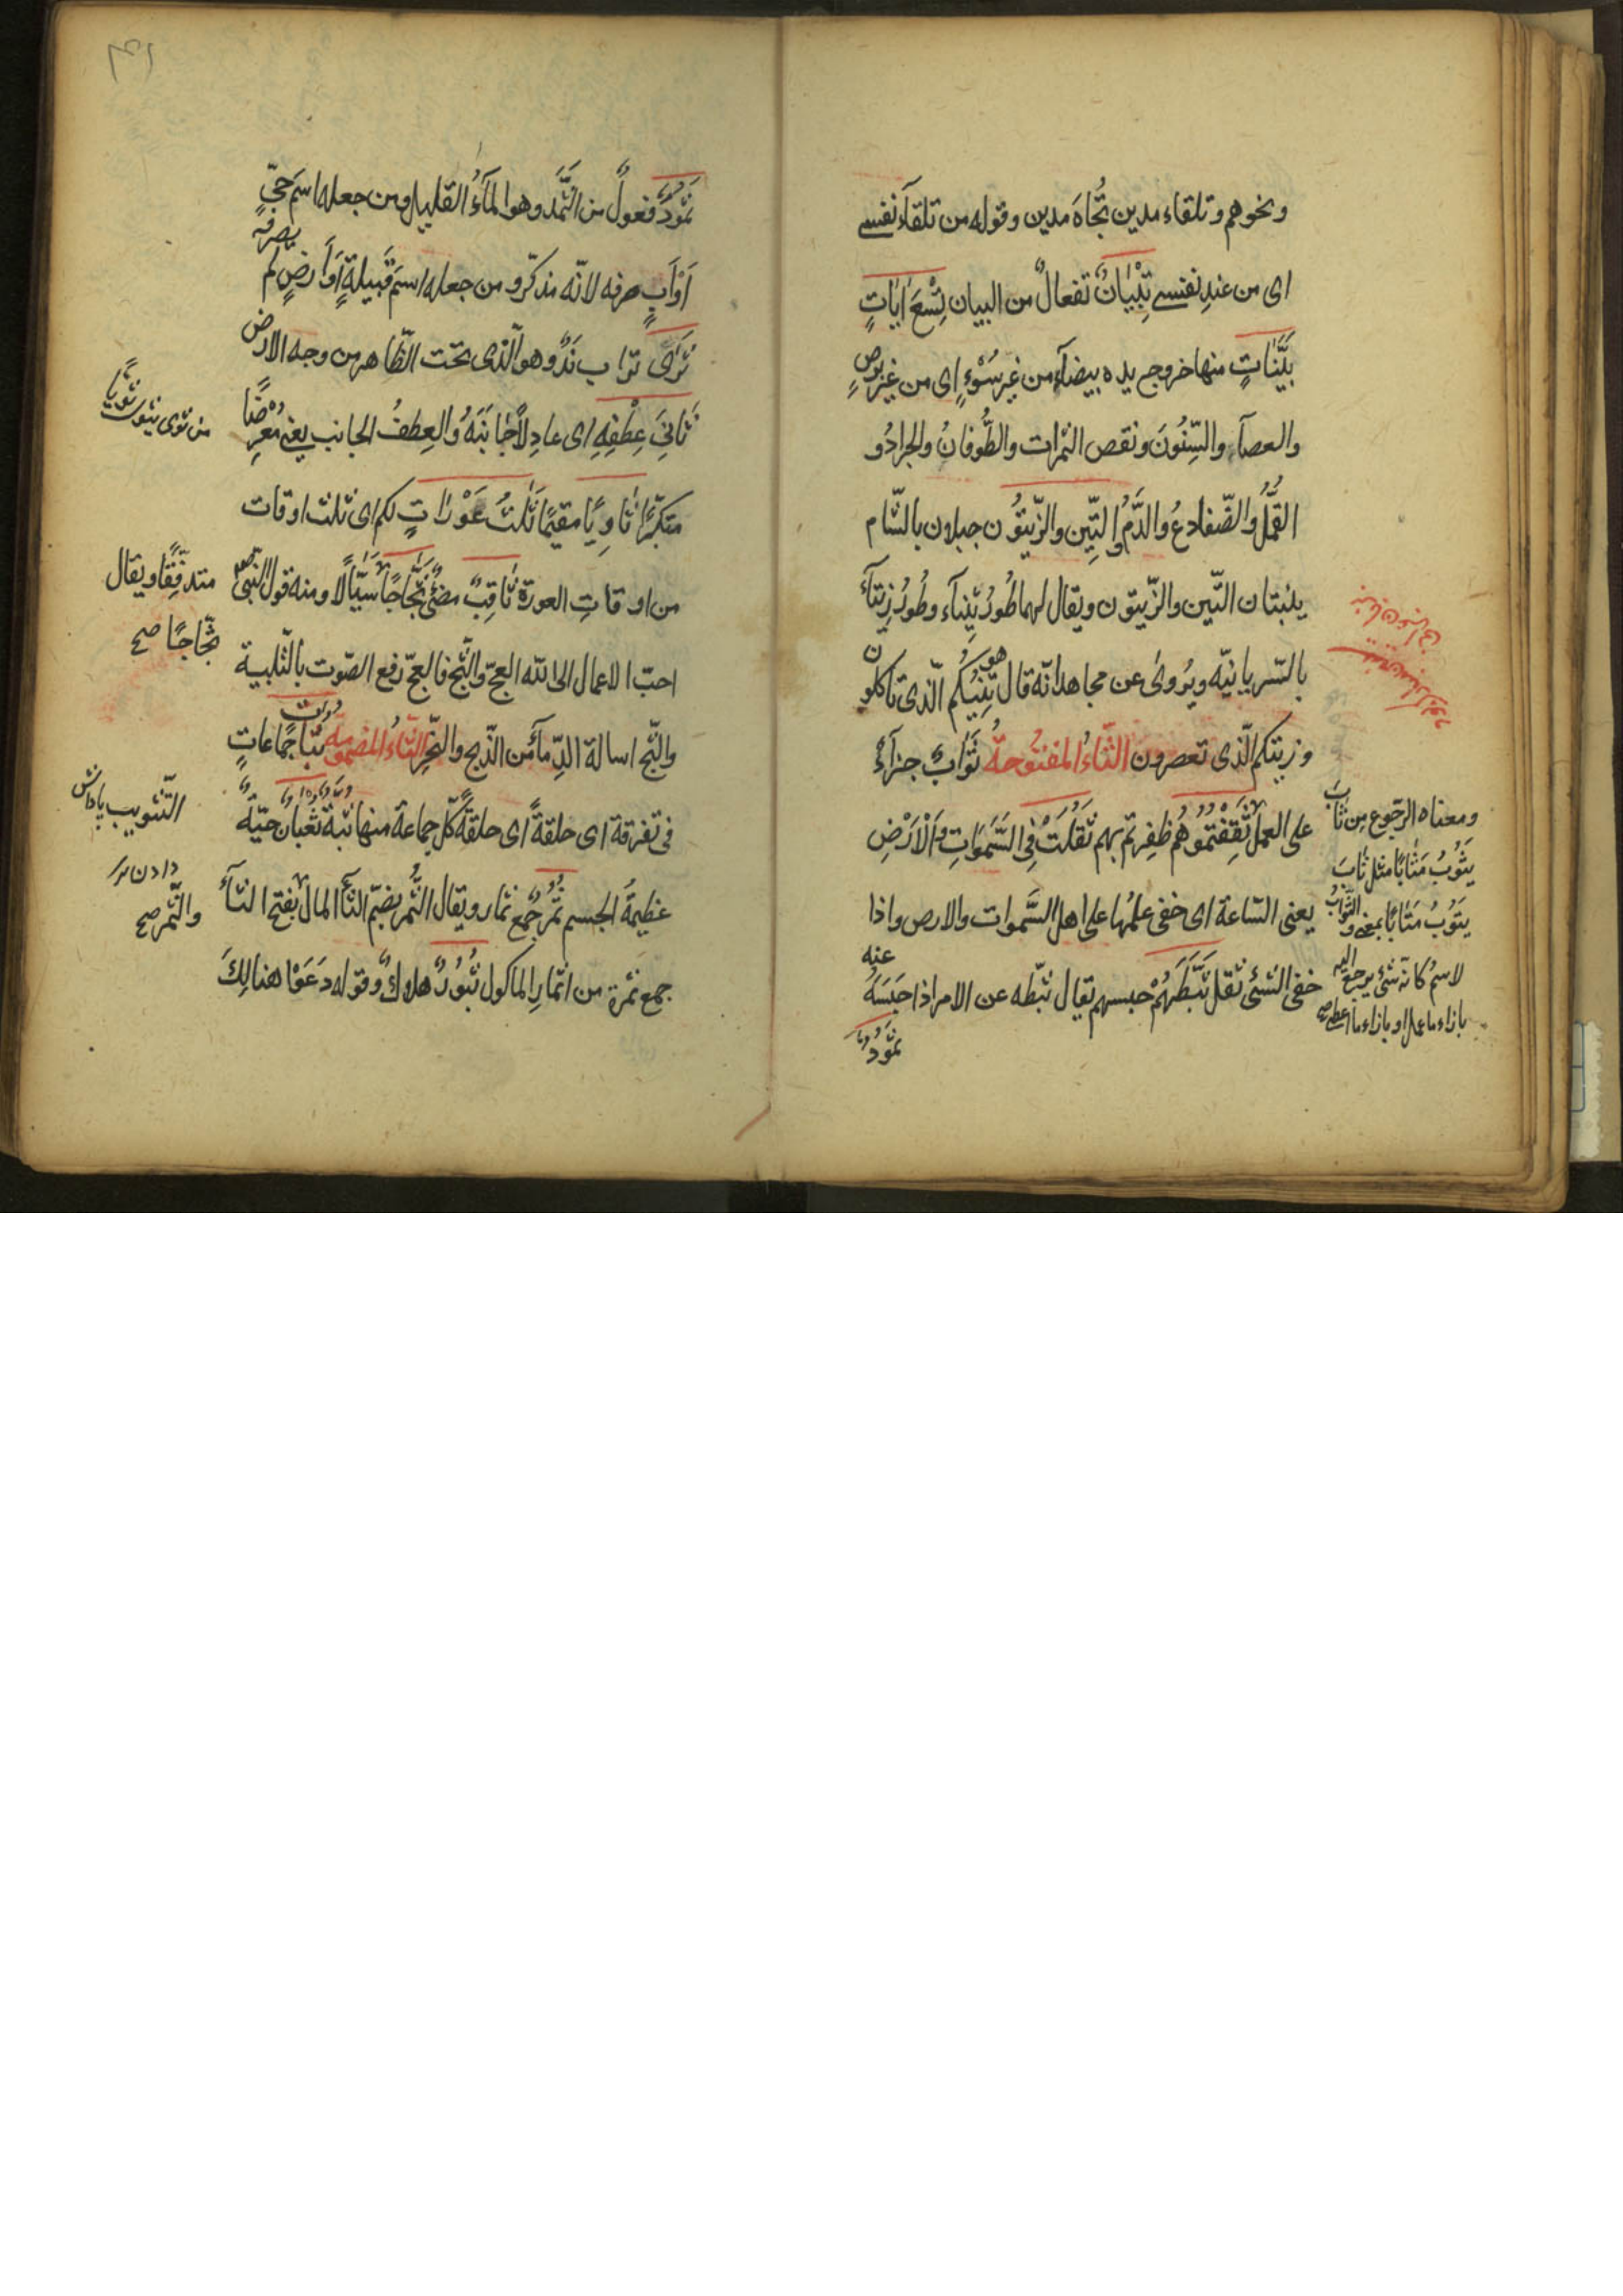 ونحوهم وتلقاء مدين تُجاهَ مدين وقوله من تلقآء نفسى
اى من عندِ نفسى تِبْيَانٌ تفعالٌ من البيان تِسْعَ اٰيَاتٍ
بَيِّنَاتٍ منها خروج يده بيضآء من غيرسُوْءٍ اى من غير برصٍ
والعصآء والسِّنُونَ ونقص الثمرات والطُّوفانُ والجرادُ و
القُمَّلُ والضّفادعُ والدَّمُ وَالتِّين والزّيتُون جبلان بالشّام
ينبتان التّين والزّيتون ويقال لهما طُورُ تِيْنَآءَ وطُورُ زِيتَآءَ
بالسّريانيّه ويُروىٰ عن مجاهد انّه قال هو تِينُكُم الّذى تاكلون
وزيتكم الّذى تعصرون الثّاءُ المفتُوحةُ ثَوَابٌ جزآءٌ
على العمل ثَقِفْتُمُوهُم ظفِرتم بهم ثَقُلَتْ فِى السَّمٰوَاتِ وَالْاَرْضِ
يعنى السّاعة اى خفى علمُها على اهل السّمٰوات والارض واذا
خفى الشئى ثقل ثَبَّطَهُمْ حبسهم يقال ثبّطه عن الامر اذا حَبَسَهُ عنه
ثمُودُ
ومعناه الرّجوع مِن ثَابَ
يَثُوبُ مَثابًا مثل تابَ
يَتُوبُ مَتَابًا بمعنى والثّوابُ
لاسمٌ كانّه شئ يرجع اليه
بازاء ما عمل او بازاء ما اعطى صح
ثَمُودُ فعولٌ من الثَّمَد وهو المآءُ القليل ومن جعله اسمَ حىٍّ
اَوْاَبٍ صرفه لانّه مذكّر ومن جعله اسمَ قَبِيلةٍ اَوْاَرضٍ لم يصرفه
ثَرٰى تراب نَدٍ وهو الّذى تحت الظّاهر من وجه الارض
ثَانِىَ عِطْفِهِ اى عادِلاً جَانِبَهُ والعِطفُ الجانب يعنى مُعرِضًا
متكبّرًا ثَاوِيًا مقيمًا ثَلٰثُ عَوْرَاتٍ لكم اى ثلث اوقات
من اوقاتِ العورة ثَاقِبٌ مضئٌ ثَجَّاجًا سَيَّالًا ومنه قول النّبىّ
احبّ الاعمال الى اللّه العجّ والثّجّ فالعجّ رفع الصّوت بالتّلبية
والثّجّ اسالة الدِّمآء من الذّبح والنّحرِ الثّاءُ المضمومة ثُبَاتٍ جماعاتٍ
فى تفرقة اى حلقةً اى حلقةً كلّ جماعة منها ثبة ثُعْبَانٌ حيّةٌ
عظيمةُ الجسم ثُمُرٌ جُمع ثمار ويقال الثُّمُر بضمّ الثّآء المال بفتح الثآء
جمع ثمرة من اثمارِ الماكول ثُبُورٌ هلاوكٌ وقوله دَعَوْا هنالِكَ
من ثوى يثوى ثويًّا
متدفِّقًا ويقال
ثجّاجًا صح
التّثويب پاداش
دادن
والثّمر صح